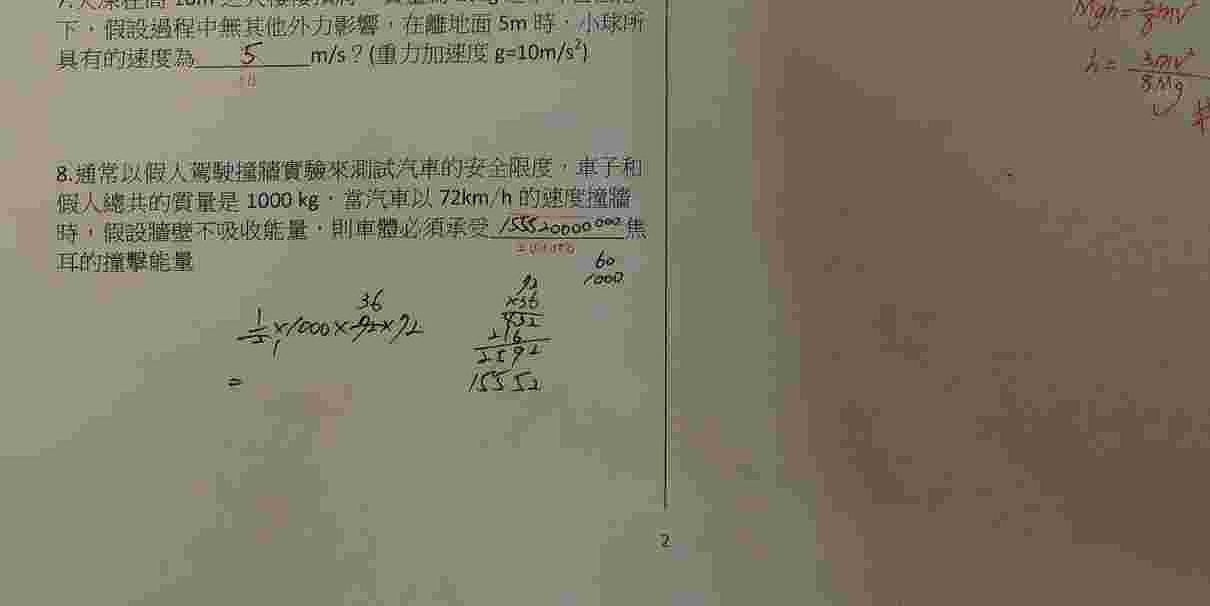 下，假設過程中無其他外力影響，在離地面 5m 時，小球所
具有的速度為 5 m/s？(重力加速度 g=10m/s²)
10
8.通常以假人駕駛撞牆實驗來測試汽車的安全限度，車子和
假人總共的質量是 1000 kg，當汽車以 72km/h 的速度撞牆
時，假設牆壁不吸收能量，則車體必須承受 155520000000 焦
耳的撞擊能量
60
1000
36
1/2 × 1000 × 72 × 72
=
72
×36
432
216
2592
15552
h = 3mv² / 8Mg
#
2